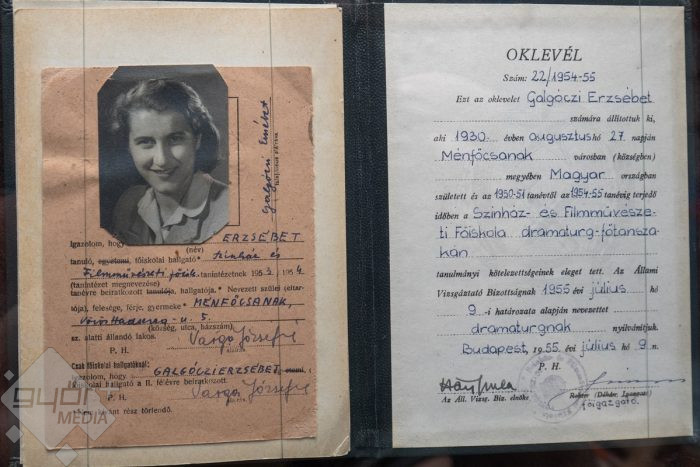 Galgóczi Erzsébet
Igazolom, hogy ERZSÉBET
(név)
tanuló, egyetemi, főiskolai hallgató Színház és
Filmművészeti főisk. tanintézetnek 1953/1954
(tanintézet megnevezése)
tanévre beiratkozott tanulója, hallgatója. * Nevezett szülei (eltar-
tója), felesége, férje, gyermeke * MÉNFŐCSANAK,
u. 5.
(község, utca, házszám)
sz. alatti állandó lakos. Varga Józsefné
P. H.
Csak főiskolai hallgatóknál:
Igazolom, hogy GALGÓCZI ERZSÉBET
főiskolai hallgató a II. félévre beiratkozott.
P. H. Varga Józsefné
rész törlendő.
győr
MEDIA
OKLEVÉL
Szám: 22/1954-55
Ezt az oklevelet Galgóczi Erzsébet
számára állítottuk ki,
aki 1930 évben augusztus hó 27. napján
Ménfőcsanak városban (községben)
megyében Magyar országban
született és az 1950-51 tanévtől az 1954-55 tanévig terjedő
időben a Színház- és Filmművésze-
ti Főiskola dramaturg-főtansza-
kán
tanulmányi kötelezettségeinek eleget tett. Az Állami
Vizsgáztató Bizottságnak 1955 évi július hó
9-i határozata alapján nevezettet
dramaturgnak nyilvánítjuk.
Budapest, 1955 évi július hó 9 n.
P. H.
Az Áll. Vizsg. Biz. elnöke Rektor (Dékán, Igazgató)
főigazgató